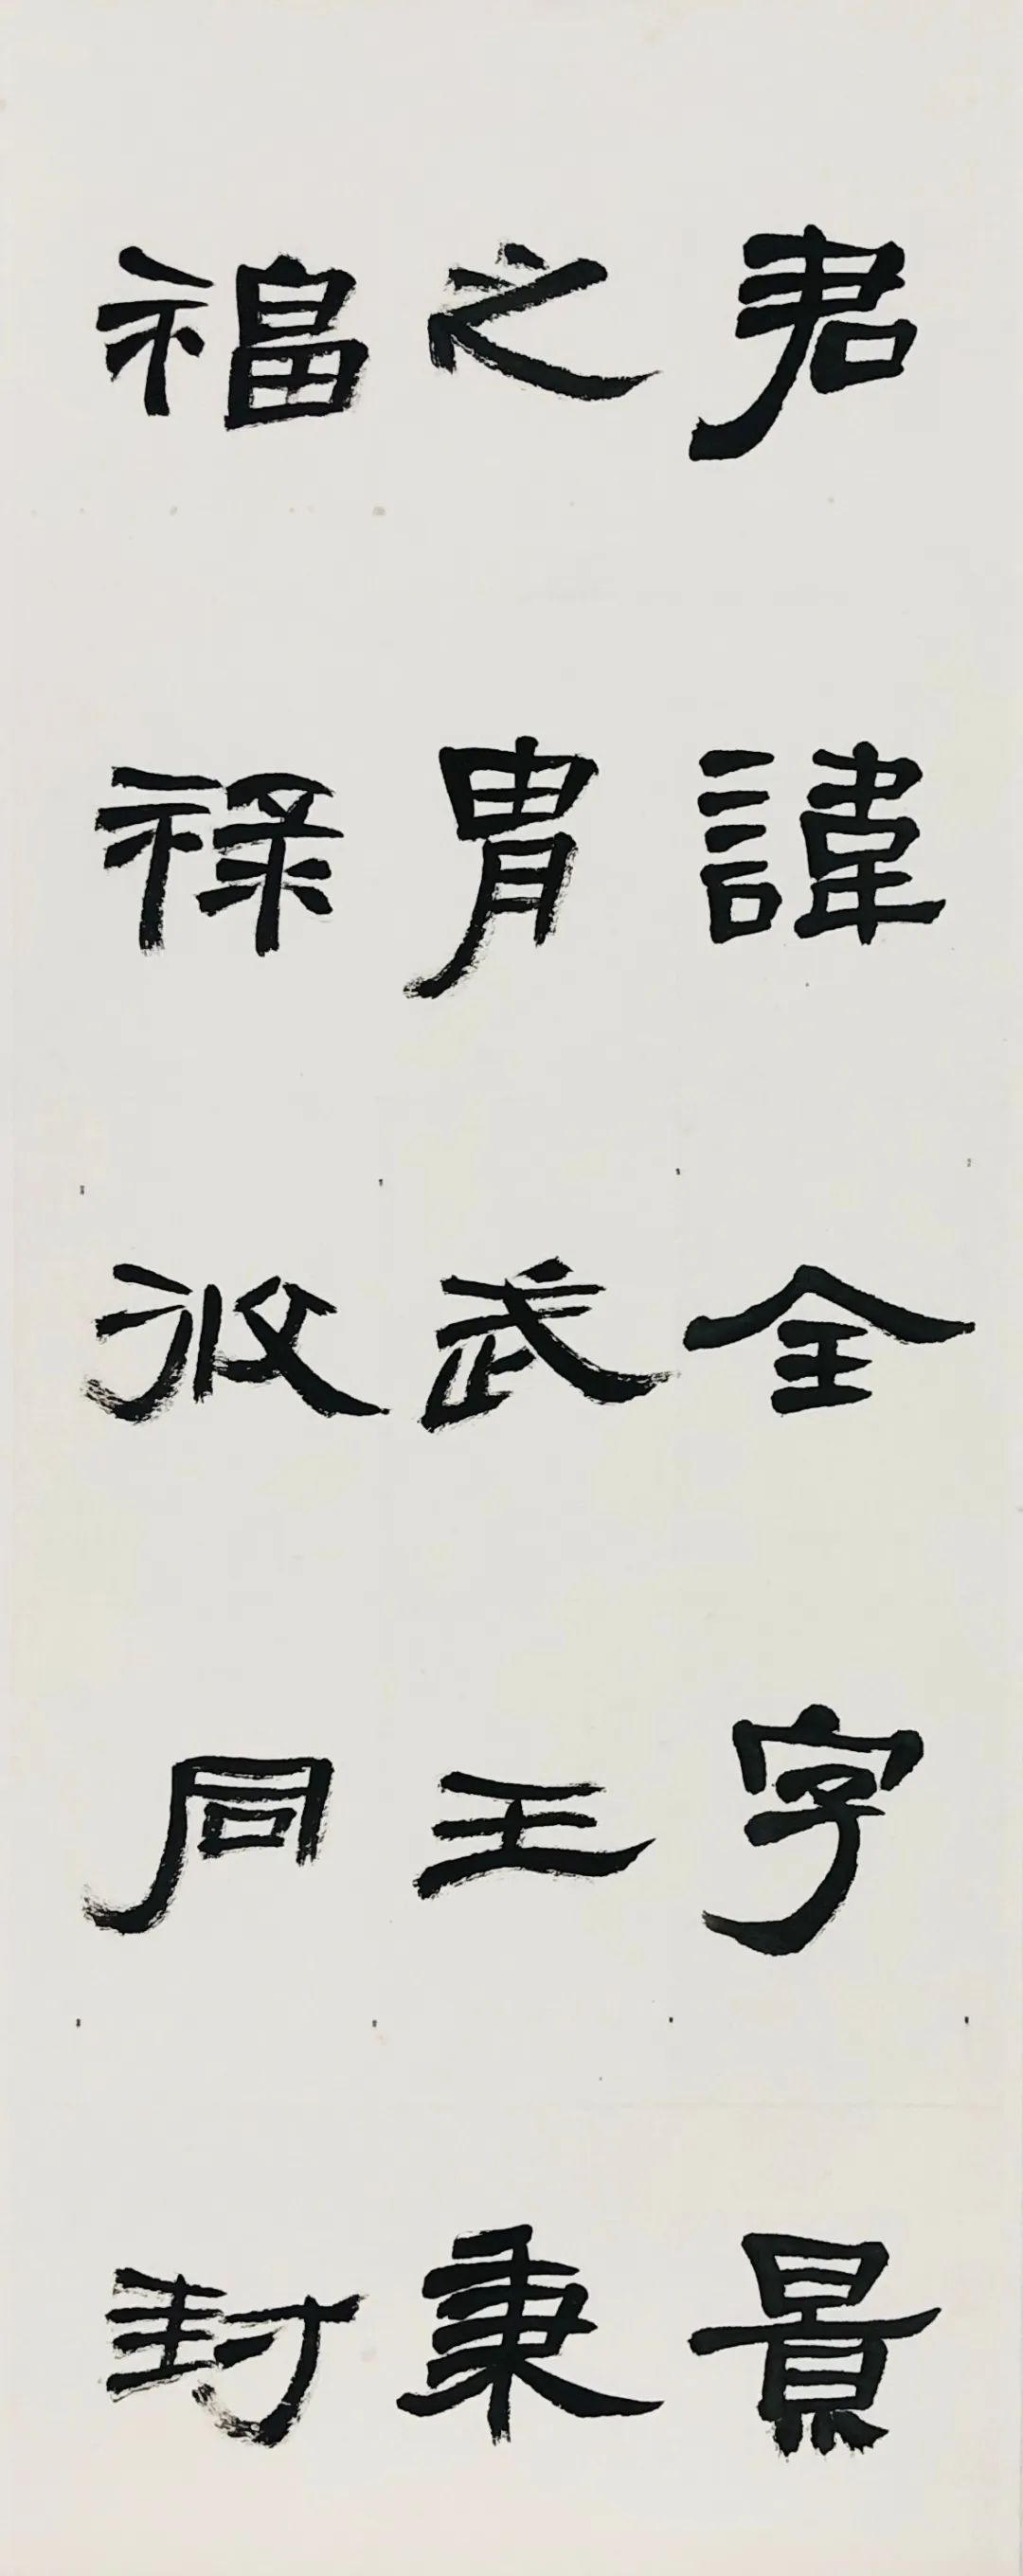 君諱全字景
之胄武王秉
福祿攸同封